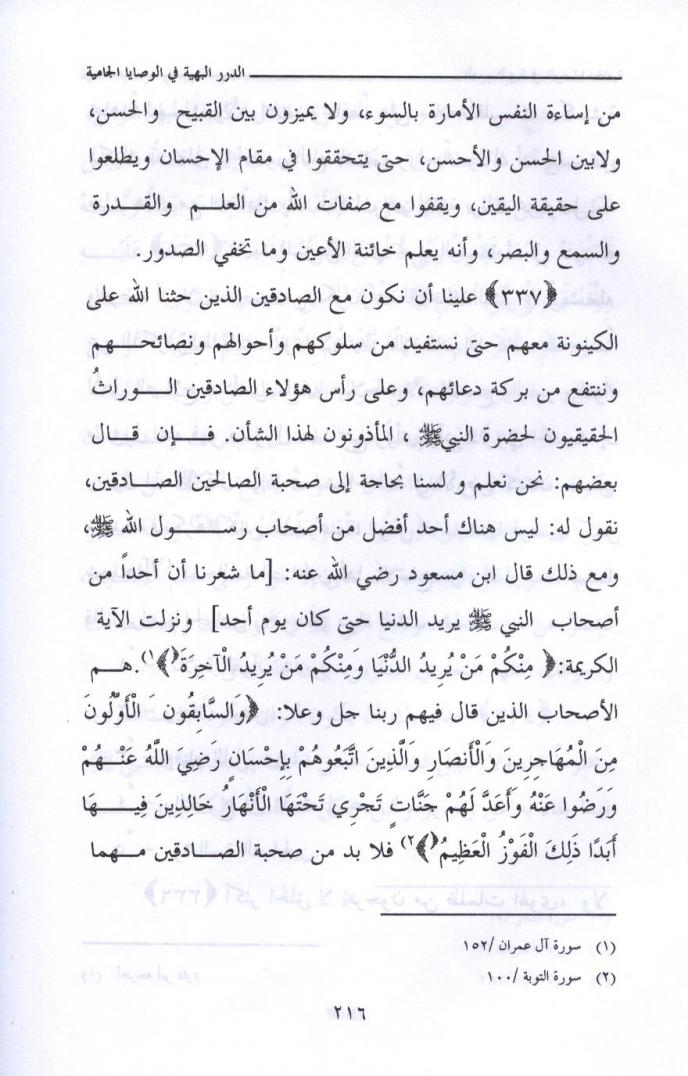 الدرر البهية في الوصايا الجامية
من إساءة النفس الأمارة بالسوء، ولا يميزون بين القبيح والحسن،
ولابين الحسن والأحسن، حتى يتحققوا في مقام الإحسان ويطلعوا
على حقيقة اليقين، ويقفوا مع صفات الله من العلم والقدرة
والسمع والبصر، وأنه يعلم خائنة الأعين وما تخفي الصدور.
﴿٣٣٧﴾ علينا أن نكون مع الصادقين الذين حثنا الله على
الكينونة معهم حتى نستفيد من سلوكهم وأحوالهم ونصائحهم
وننتفع من بركة دعائهم، وعلى رأس هؤلاء الصادقين الوراثُ
الحقيقيون لحضرة النبي ﷺ ، المأذونون لهذا الشأن. فإن قال
بعضهم: نحن نعلم و لسنا بحاجة إلى صحبة الصالحين الصادقين،
نقول له: ليس هناك أحد أفضل من أصحاب رسول الله ﷺ،
ومع ذلك قال ابن مسعود رضي الله عنه: [ما شعرنا أن أحداً من
أصحاب النبي ﷺ يريد الدنيا حتى كان يوم أحد] ونزلت الآية
الكريمة:﴿ مِنْكُمْ مَنْ يُرِيدُ الدُّنْيَا وَمِنْكُمْ مَنْ يُرِيدُ الْآخِرَةَ﴾(١).هم
الأصحاب الذين قال فيهم ربنا جل وعلا: ﴿وَالسَّابِقُونَ الْأَوَّلُونَ
مِنَ الْمُهَاجِرِينَ وَالْأَنصَارِ وَالَّذِينَ اتَّبَعُوهُمْ بِإِحْسَانٍ رَضِيَ اللَّهُ عَنْهُمْ
وَرَضُوا عَنْهُ وَأَعَدَّ لَهُمْ جَنَّاتٍ تَجْرِي تَحْتَهَا الْأَنْهَارُ خَالِدِينَ فِيهَا
أَبَدًا ذَلِكَ الْفَوْزُ الْعَظِيمُ﴾(٢) فلا بد من صحبة الصادقين مهما
(١) سورة آل عمران /١٥٢
(٢) سورة التوبة /١٠٠
٢١٦